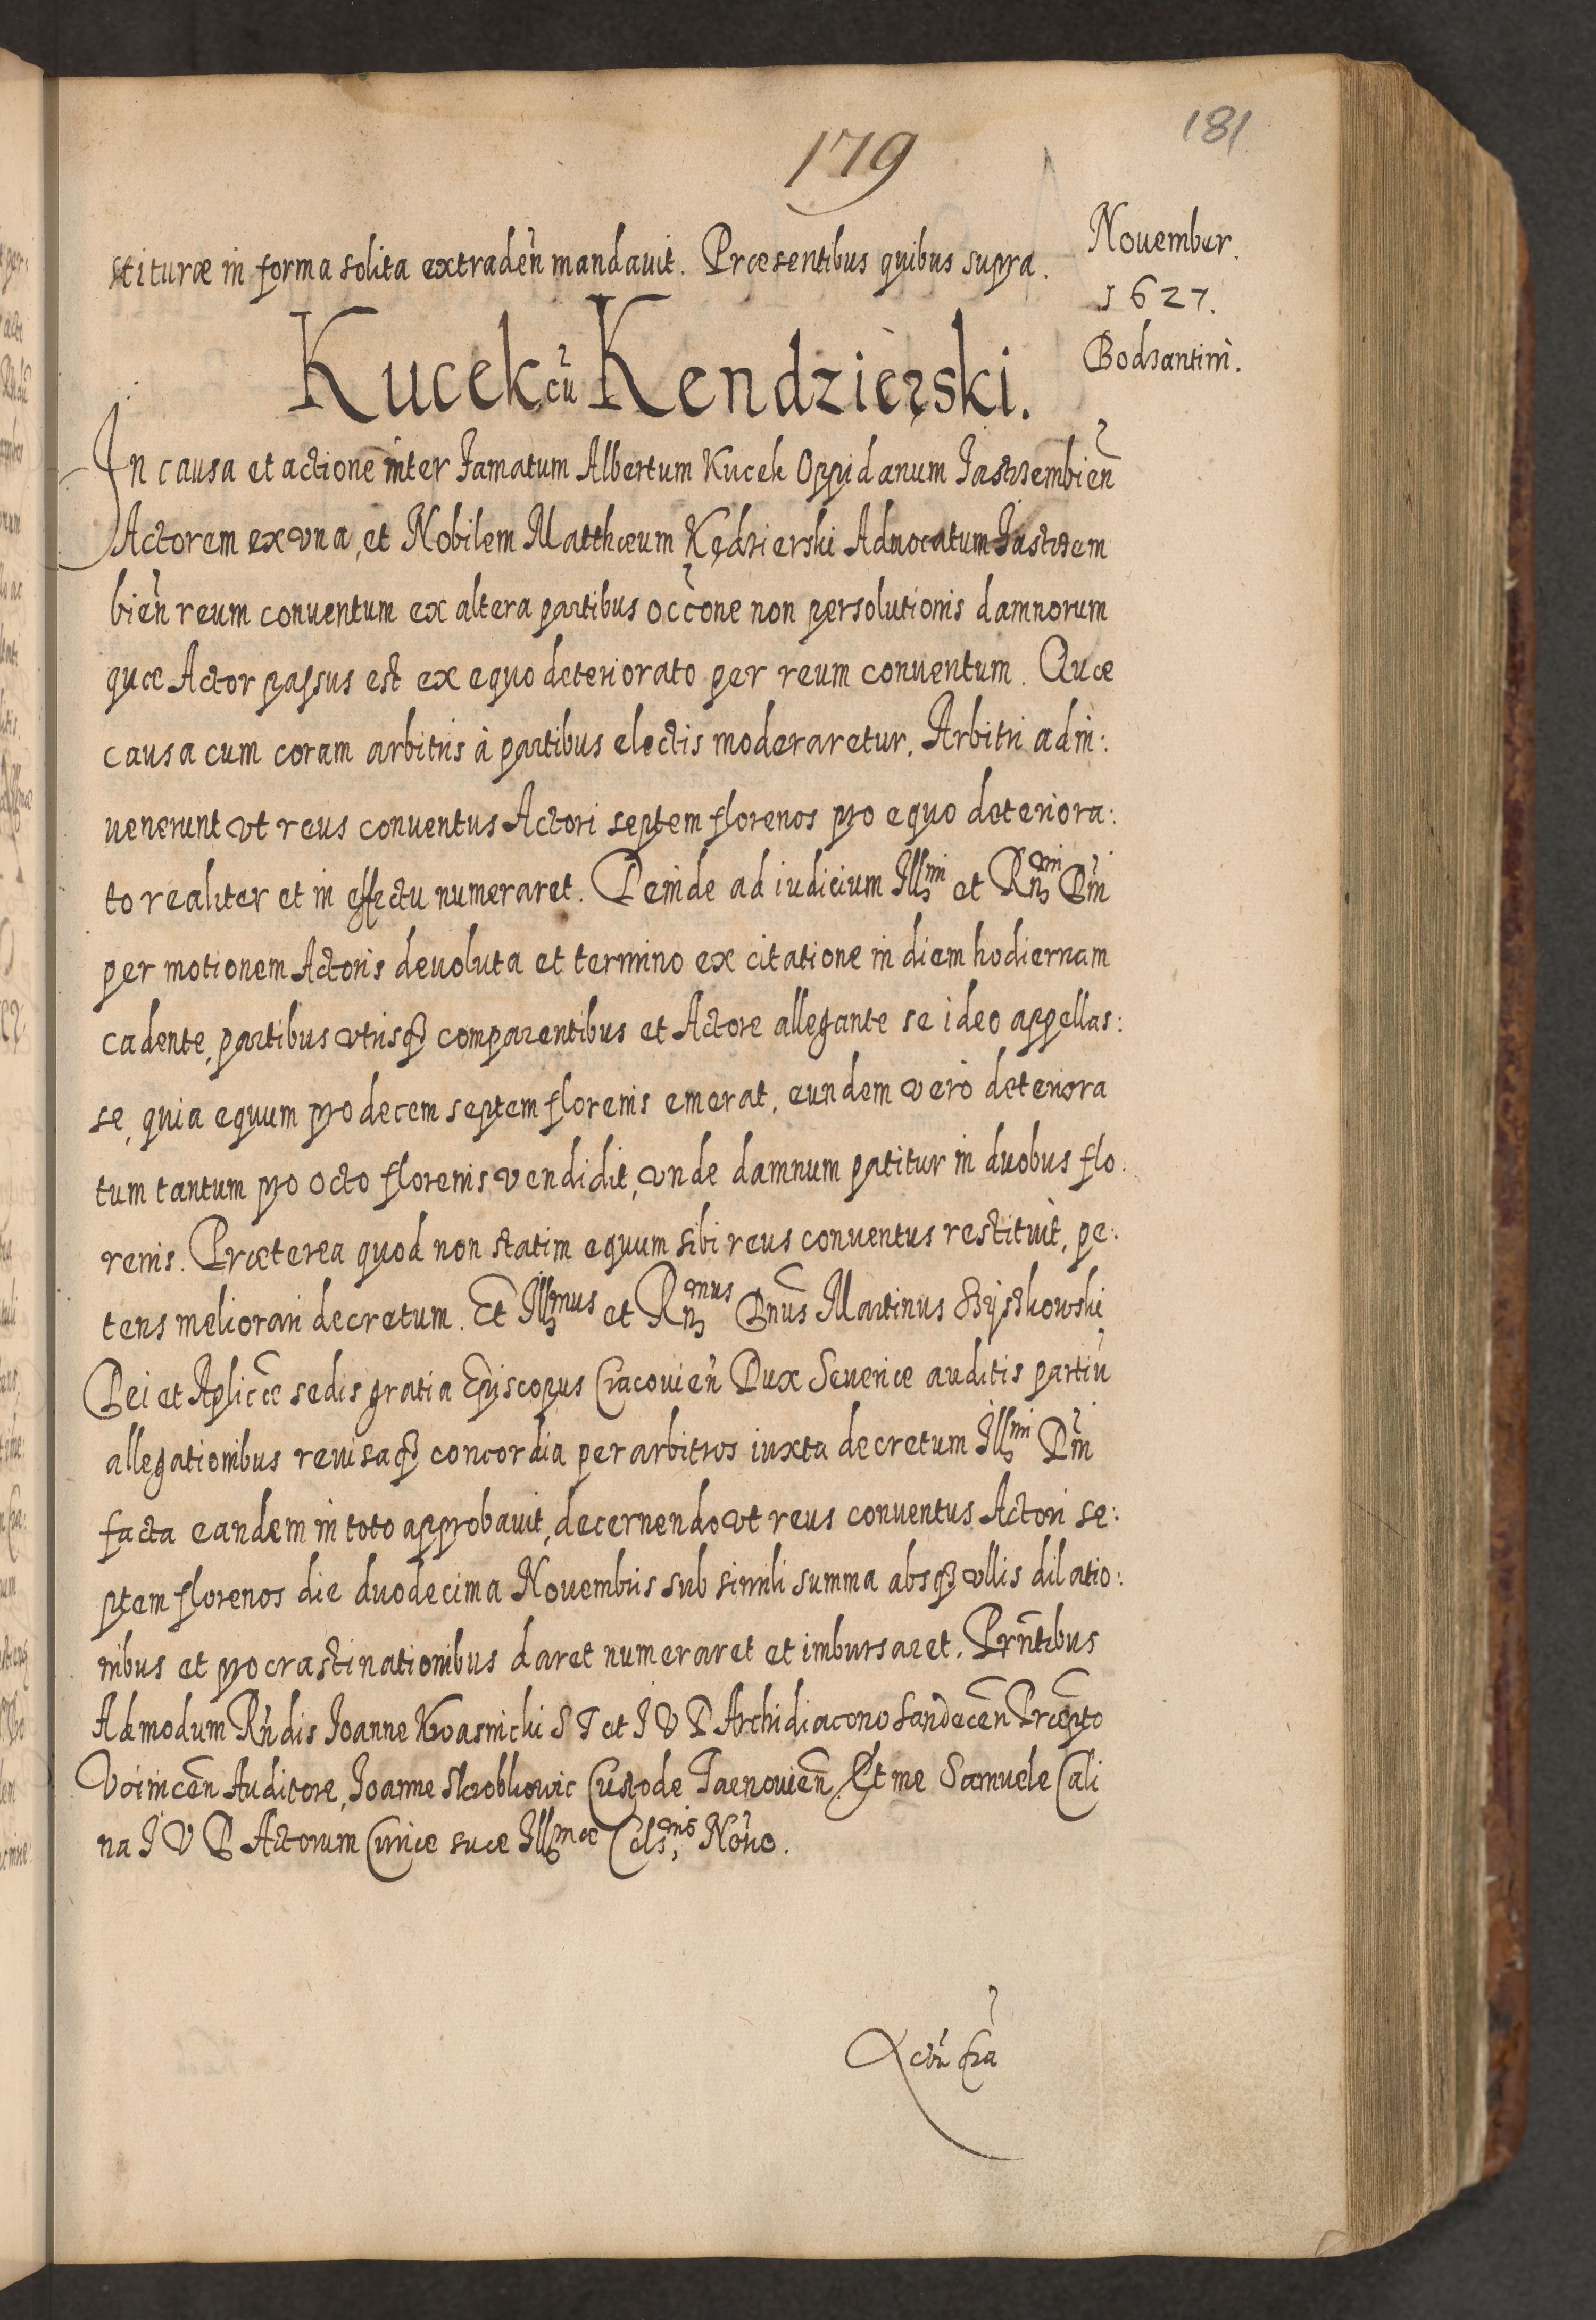 179
181
Nouember.
1627.
Bodzantini.
stituræ in forma solita extraden̄ mandauit. Præsentibus quibus supra.
Kucek cū Kendzierski.
In causa et actione inter famatum Albertum Kucek Oppidanum Jastrzembien̄
Actorem ex vna, et Nobilem Matthæum Kędzierski Aduocatum Jastrzem
bien̄ reum conuentum ex altera partibus occōne non persolutionis damnorum
quæ Actor passus est ex equo deteriorato per reum conuentum. Quæ
causa cum coram arbitris à partibus electis moderaretur. Arbitri adin:
uenerunt vt reus conuentus Actori septem florenos pro equo deteriora:
to realiter et in effectu numeraret. Deinde ad iudicium Illmi et Rndmi Dni
per motionem Actoris deuoluta et termino ex citatione in diem hodiernam
cadente, partibus vtrisq3 comparentibus et Actore allegante se ideo appellas:
se, quia equum pro decem septem florenis emerat, eundem verò deteriora
tum tantum pro octo florenis vendidit, vnde damnum patitur in duobus flo.
renis. Præterea quod non statim equum sibi reus conuentus restituit, pe:
tens meliorari decretum. Et Illmus et Rndmus Dnūs Martinus Szyszkowski
Dei et Aplicæ sedis gratia Episcopus Cracouien̄ Dux Seueriæ auditis partiū
allegationibus reuisaq3 concordia per arbitros iuxta decretum Illmi Dni
facta eandem in toto approbauit, decernendo vt reus conuentus Actori se:
ptem florenos die duodecima Nouembris sub simili summa absq3 vllis dilatio:
nibus et procrastinationibus daret numeraret et imbursaret. Prn̄tibus
Admodum Rn̄dis Joanne Kwasnicki S T et J V D Archidiacono Sandecen̄ Præpto
Voinicen̄ Auditore, Joanne Skrobkowic Custode Tarnouien̄ Et me Samuele Cali
na J V D Actorum Curiæ suæ Illmæ Cels,nis Notrio.